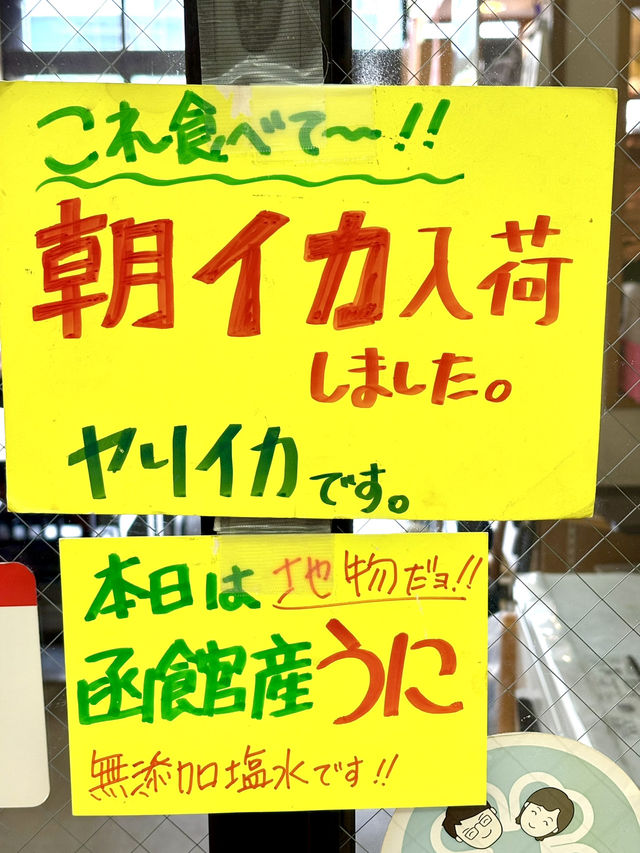 これ食べて〜!!
朝イカ入荷
しました。
ヤリイカです。
本日は地物だョ!!
函館産うに
無添加塩水です!!